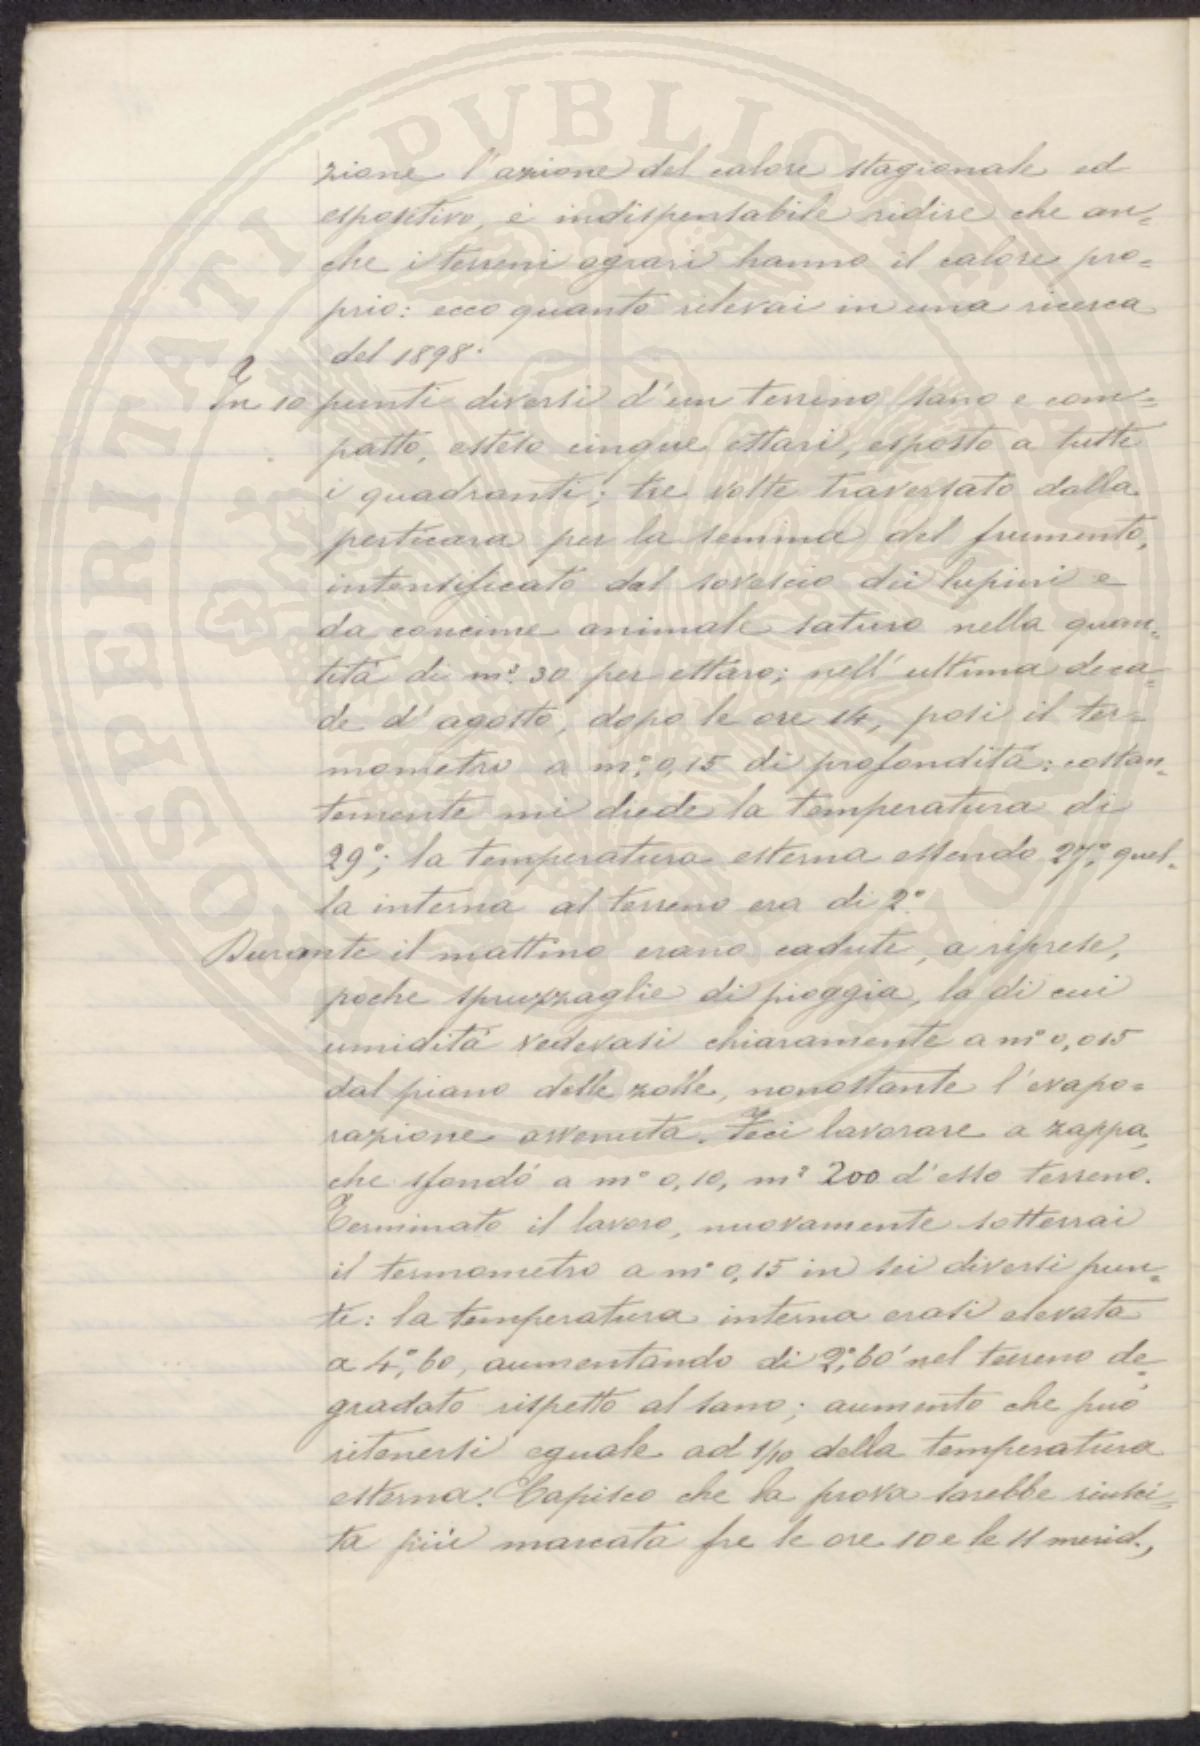 zione l'azione del calore stagionale ed
espositivo, è indispensabile ridire che an=
che i terreni agrari hanno il calore pro=
prio: ecco quanto rilevai in una ricerca
del 1898.
a
In 10 punti diversi d'un terreno sano e com=
patto, esteso cinque ettari, esposto a tutti
i quadranti; tre volte traversato dalla
perticara per la semina del frumento,
intensificato dal sovescio dei lupini e
da concime animale saturo nella quan=
tità di m³. 30 per ettaro; nell'ultima deca=
de d'agosto, dopo le ore 14, posi il ter=
mometro a m.° 0,15 di profondità: costan=
temente mi diede la temperatura di
29°; la temperatura esterna essendo 27,° quel=
la interna al terreno era di 2°.
Durante il mattino erano cadute, a riprese,
poche spruzzaglie di pioggia, la di cui
umidità vedevasi chiaramente a m° 0,015
dal piano delle zolle, nonostante l'evapo=
razione avvenuta. Feci lavorare a zappa,
che sfondò a m° 0,10, m² 200 d'esso terreno.
Terminato il lavoro, nuovamente sotterrai
il termometro a m° 0,15 in sei diversi pun=
ti: la temperatura interna erasi elevata
a 4,°60, aumentando di 2,°60 nel terreno de=
gradato rispetto al sano; aumento che può
ritenersi eguale ad 1/10 della temperatura
esterna. Capisco che la prova sarebbe riusci=
ta più marcata fre le ore 10 e le 11 merid.,
PROSPERITATI PUBLICAE